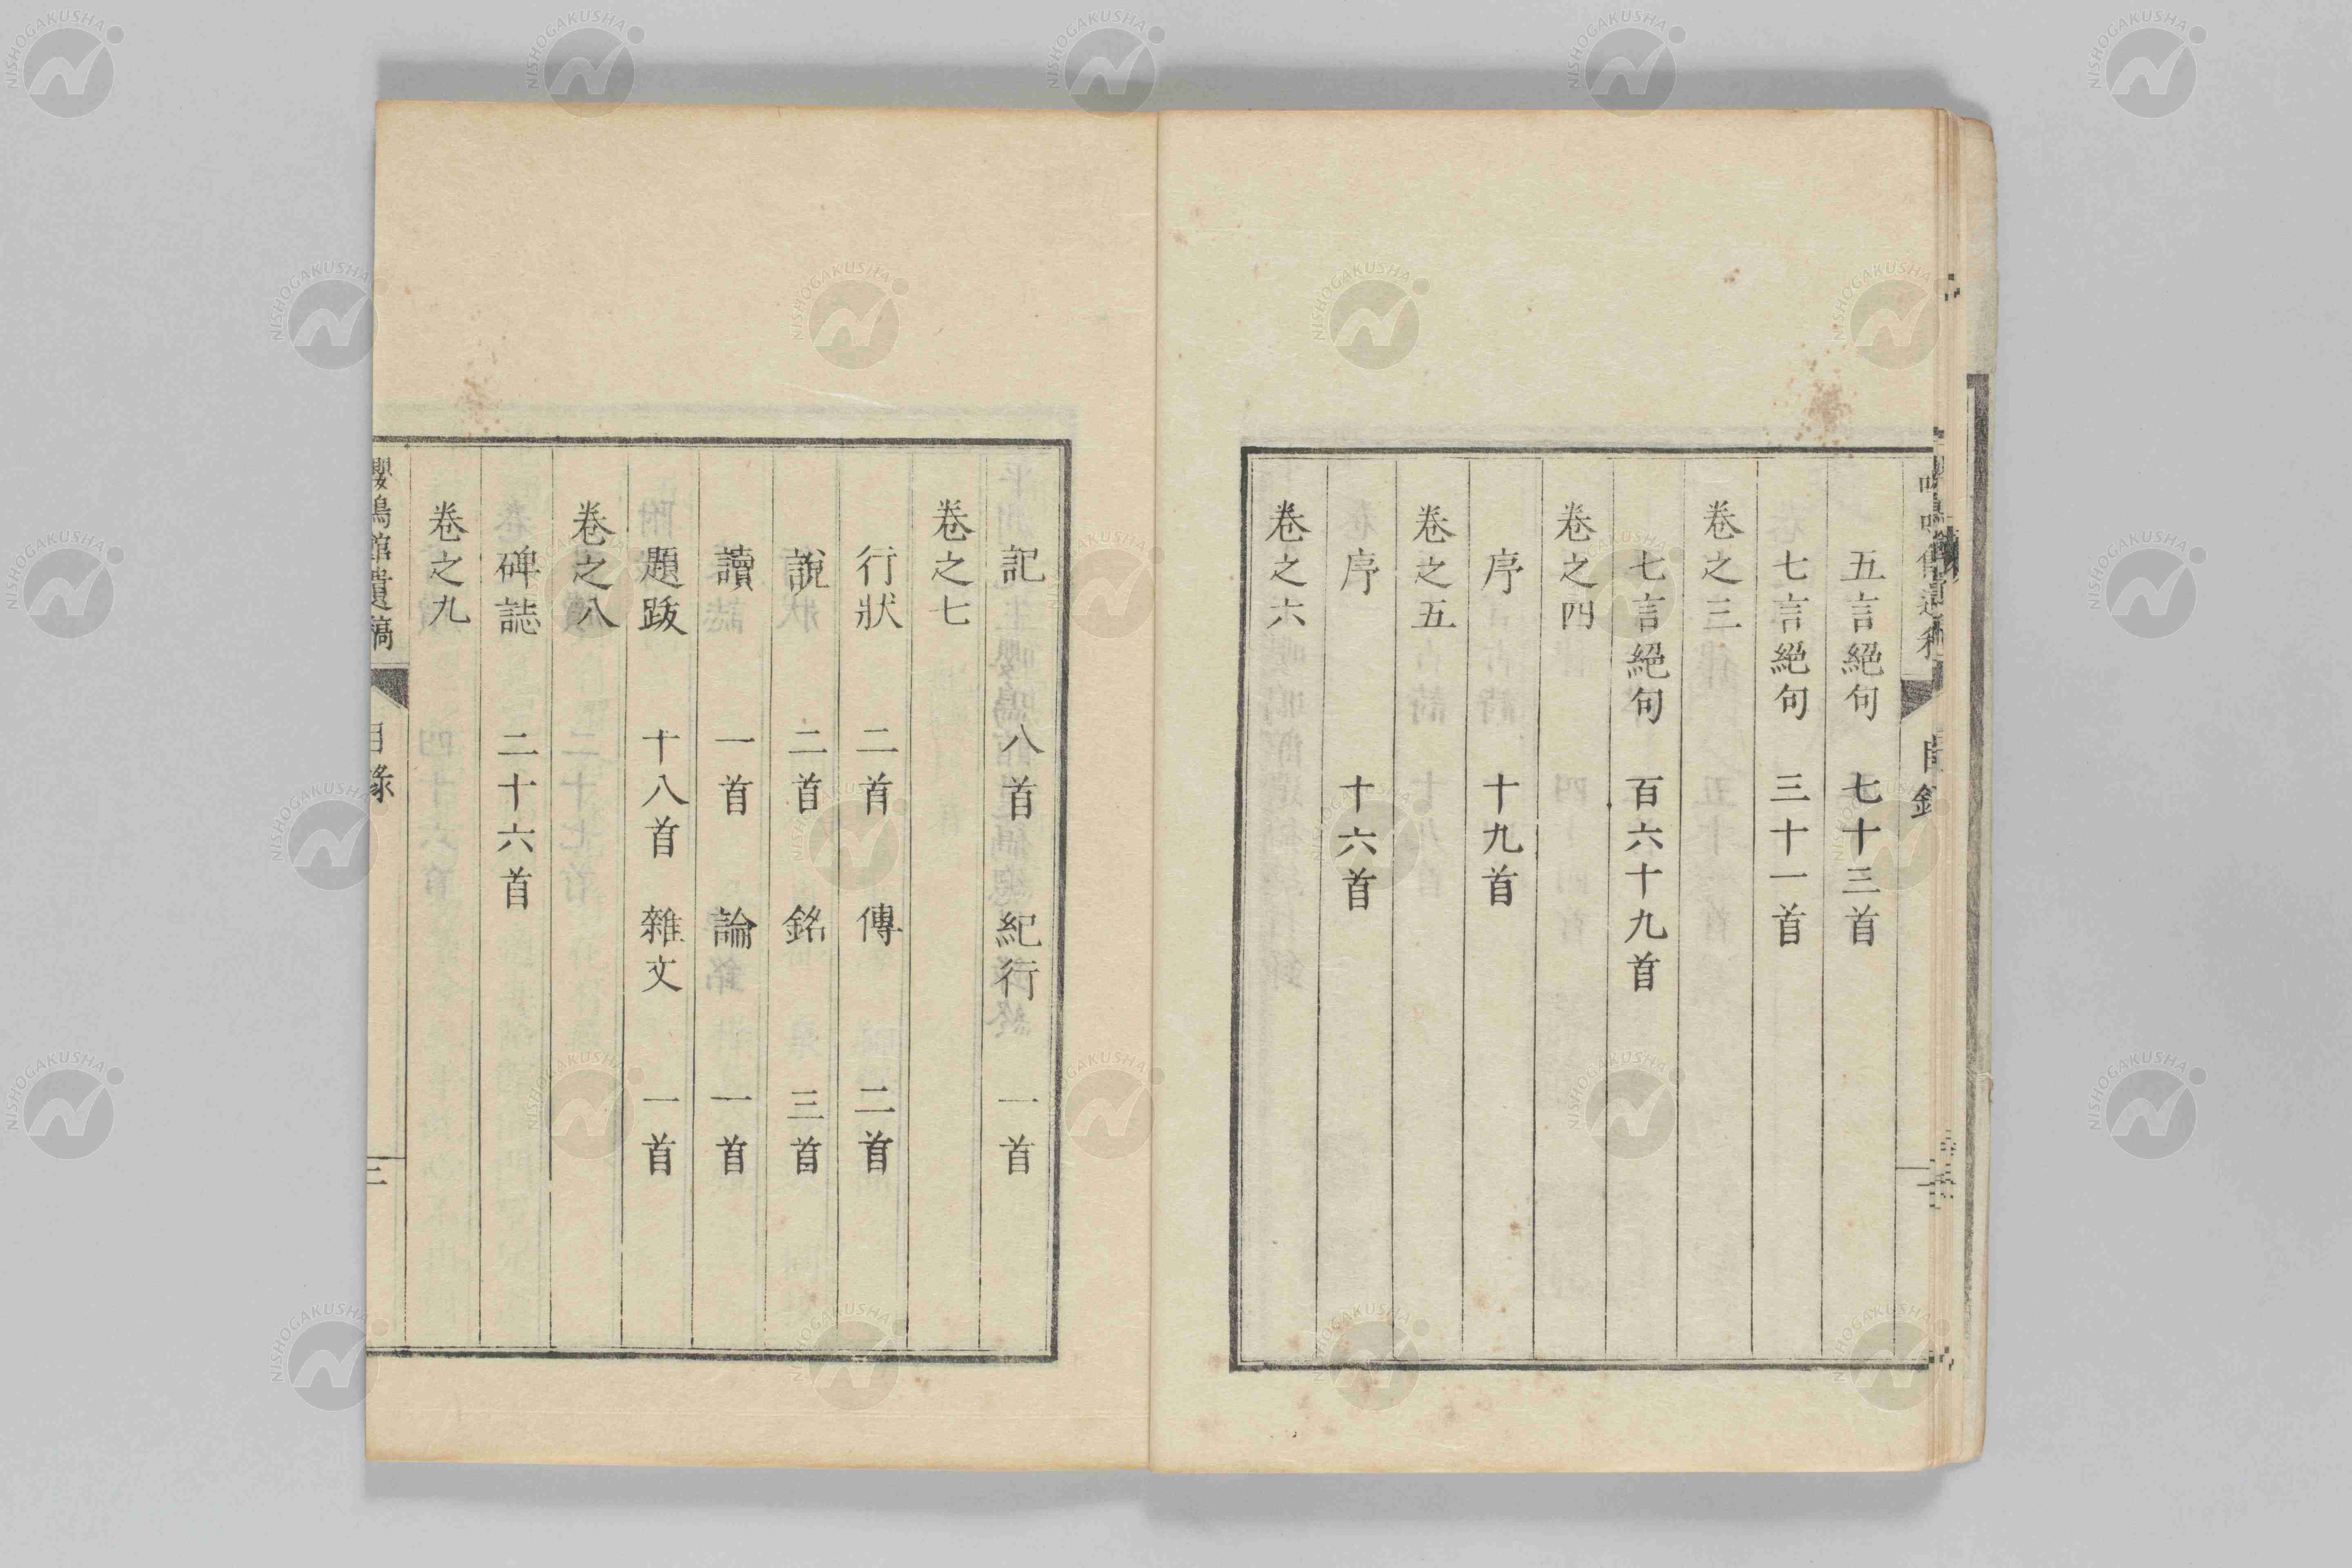 五言絕句 七十三首
七言絕句 三十一首
卷之三
七言絕句 百六十九首
卷之四
序 十九首
卷之五
序 十六首
卷之六
記 八首 紀行 一首
卷之七
行狀 二首 傳 二首
說 二首 銘 三首
讀 一首 論 一首
題跋 十八首 雜文 一首
卷之八
碑誌 二十六首
卷之九
嚶鳴館遺稿 目錄 三
NISHOGAKUSHA